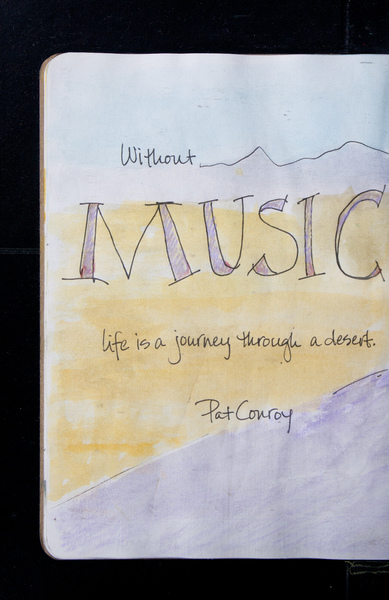 Without
MUSIC
life is a journey through a desert.
Pat Conroy